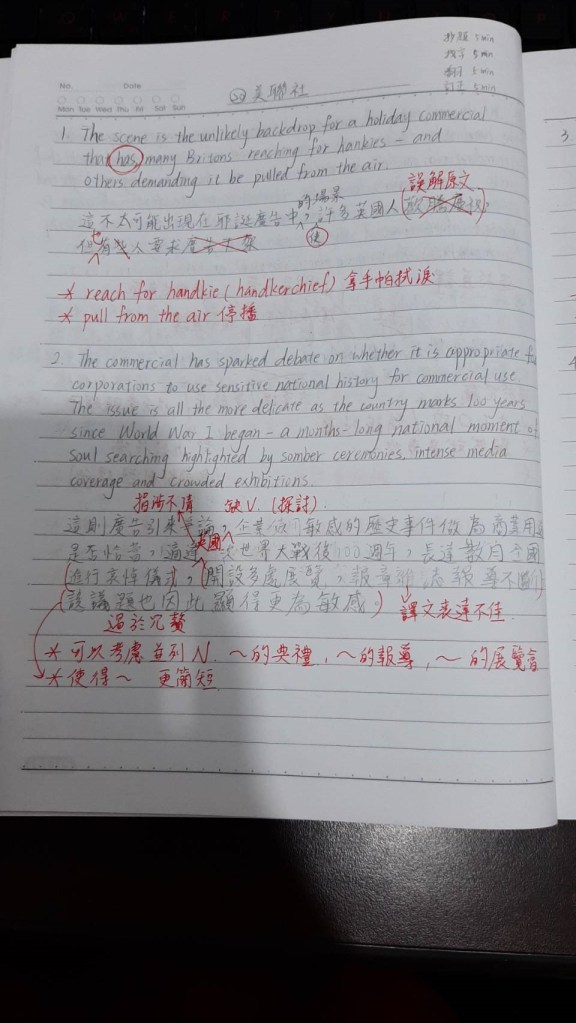 抄題 5 min
找字 5 min
翻譯 5 min
訂正 5 min
No. Date
Mon Tue Wed Thu Fri Sat Sun
㉓ 美聯社
1. The scene is the unlikely backdrop for a holiday commercial
that has many Britons reaching for hankies - and
others demanding it be pulled from the air.
的場景 誤解原文
這不太可能出現在耶誕廣告中,許多英國人
使
但有些人要求廣告
* reach for handkie (handkerchief) 拿手帕拭淚
* pull from the air 停播
2. The commercial has sparked debate on whether it is appropriate
corporations to use sensitive national history for commercial use.
The issue is all the more delicate as the country marks 100 years
since World War I began - a months-long national moment of
soul searching highlighted by somber ceremonies, intense media
coverage and crowded exhibitions.
指涉不清 缺V. (探討)
這則廣告引來爭論,企業 敏感的歷史事件做為商業用
英國
是否恰當,適逢 次世界大戰後100週年,長達數月全國
進行哀悼儀式,開設多處展覽,報章雜 報導不斷
該議題也因此顯得更為敏感。 譯文表達不佳
過於冗贅
* 可以考慮並列 N. ~的典禮,~的報導,~的展覽會
* 使得~ 更簡短
3.